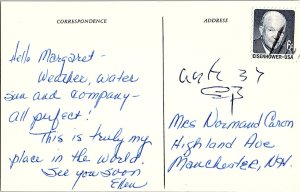 CORRESPONDENCE
Hello Margaret -
Weather, water
sun and company -
all perfect!
This is truly my
place in the world.
See you soon
Ellen
ADDRESS
EISENHOWER·USA
Mrs Normand Caron
Highland Ave
Manchester, N.H.